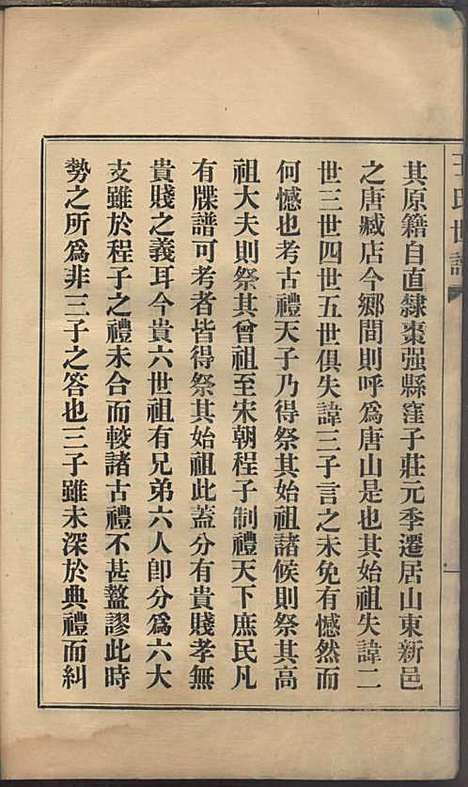 王氏世譜
其原籍自直隸棗强縣窪子莊元季遷居山東新邑
之唐臧店今鄉間則呼爲唐山是也其始祖失諱二
世三世四世五世俱失諱三子言之未免有憾然而
何憾也考古禮天子乃得祭其始祖諸候則祭其高
祖大夫則祭其曾祖至宋朝程子制禮天下庶民凡
有牒譜可考者皆得祭其始祖此蓋分有貴賤孝無
貴賤之義耳今貴六世祖有兄弟六人卽分爲六大
支雖於程子之禮未合而較諸古禮不甚盭謬此時
勢之所爲非三子之答也三子雖未深於典禮而糾